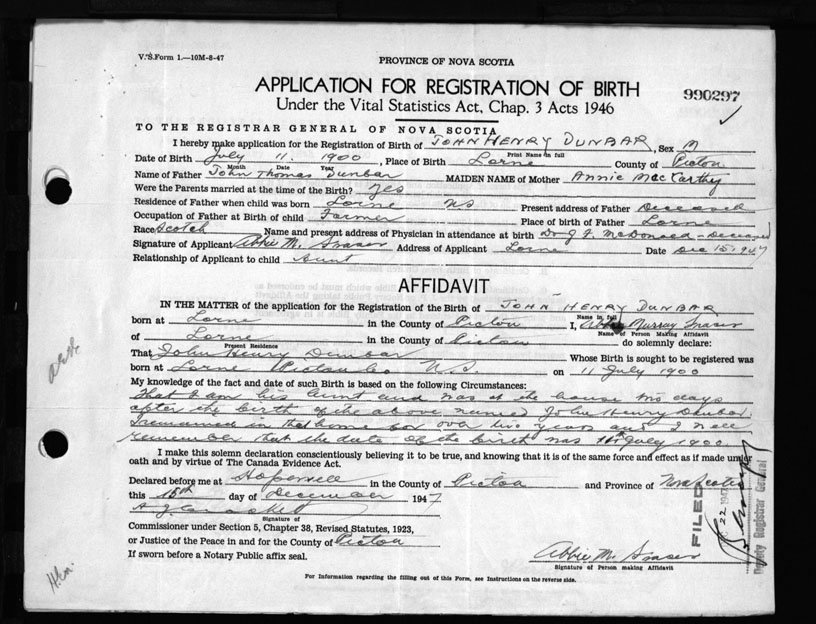 V.S. Form 1.—10M-8-47
PROVINCE OF NOVA SCOTIA
APPLICATION FOR REGISTRATION OF BIRTH
990297
Under the Vital Statistics Act, Chap. 3 Acts 1946
TO THE REGISTRAR GENERAL OF NOVA SCOTIA
I hereby make application for the Registration of Birth of JOHN HENRY DUNBAR, Sex M
Print Name in full
Date of Birth July 11. 1900, Place of Birth Lorne County of Pictou
Month Date Year
Name of Father John Thomas Dunbar MAIDEN NAME of Mother Annie MacCarthy
Were the Parents married at the time of the Birth? Yes
Residence of Father when child was born Lorne NS Present address of Father Deceased
Occupation of Father at Birth of child Farmer Place of birth of Father Lorne
Race Scotch Name and present address of Physician in attendance at birth Dr J F McDonald - Deceased
Signature of Applicant Abbie M. Fraser Address of Applicant Lorne Date Dec 15. 1947
Relationship of Applicant to child Aunt
AFFIDAVIT
IN THE MATTER of the application for the Registration of the Birth of JOHN HENRY DUNBAR
Name in full
born at Lorne in the County of Pictou I, Abbie Murray Fraser
Name of Person Making Affidavit
of Lorne in the County of Pictou do solemnly declare:
Present Residence
That John Henry Dunbar Whose Birth is sought to be registered was
born at Lorne Pictou Co N.S. on 11 July 1900
My knowledge of the fact and date of such Birth is based on the following Circumstances:
That I am his Aunt and was at the house two days
after the birth of the above named John Henry Dunbar.
I remained in that home for over two years and I well
remember that the date of the birth was 11th July 1900.
I make this solemn declaration conscientiously believing it to be true, and knowing that it is of the same force and effect as if made under
oath and by virtue of The Canada Evidence Act.
Declared before me at Hopewell in the County of Pictou and Province of Nova Scotia
this 15th day of December 1947
Signature of
Commissioner under Section 5, Chapter 38, Revised Statutes, 1923,
or Justice of the Peace in and for the County of Pictou
If sworn before a Notary Public affix seal.
Abbie M. Fraser
Signature of Person making Affidavit
For Information regarding the filling out of this Form, see Instructions on the reverse side.
FILED
22 1947
Deputy Registrar General